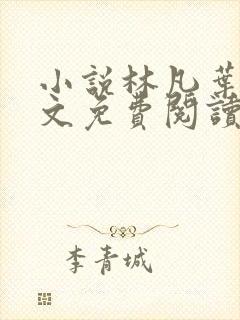 小說林凡葉
文免費閱讀
李青城